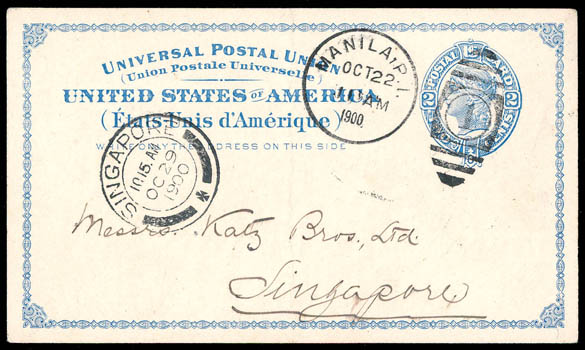 UNIVERSAL POSTAL UNION
(Union Postale Universelle)
UNITED STATES OF AMERICA
(États-Unis d'Amérique)
WRITE ONLY THE ADDRESS ON THIS SIDE
MANILA, P.I.
OCT 22
AM
1900
POSTAL CARD
2
2
SINGAPORE
10.15.AM
OC 29
1900
Messrs. Katz Bros., Ltd.
Singapore